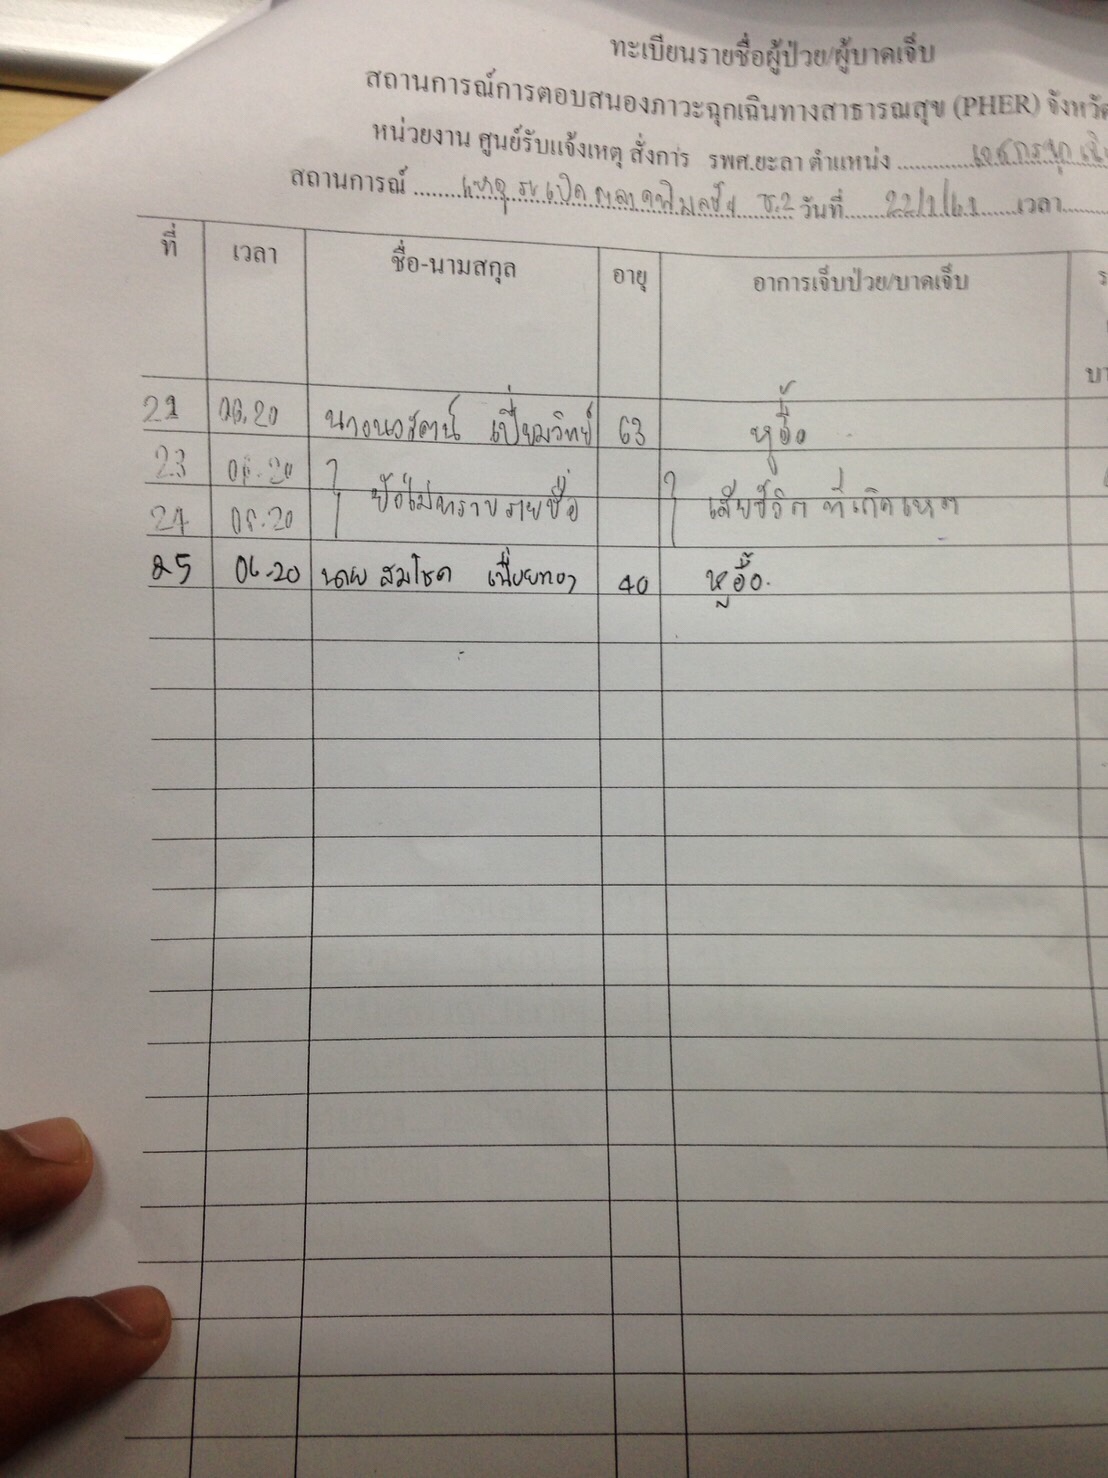 ทะเบียนรายชื่อผู้ป่วย/ผู้บาดเจ็บ
สถานการณ์การตอบสนองภาวะฉุกเฉินทางสาธารณสุข (PHER) จังหวัด
หน่วยงาน ศูนย์รับแจ้งเหตุ สั่งการ รพศ.ยะลา ตำแหน่ง
สถานการณ์ เหตุระเบิดตลาดพิมลชัย วันที่ 22/1/61 เวลา
ที่ เวลา ชื่อ-นามสกุล อายุ อาการเจ็บป่วย/บาดเจ็บ
06.20 เปี่ยมวิทย์ 63 หูอื้อ
23 06.20
ยังไม่ทราบรายชื่อ เสียชีวิต ที่เกิดเหตุ
24 06.20
25 06.20 นาย สมโชค 40 หูอื้อ.